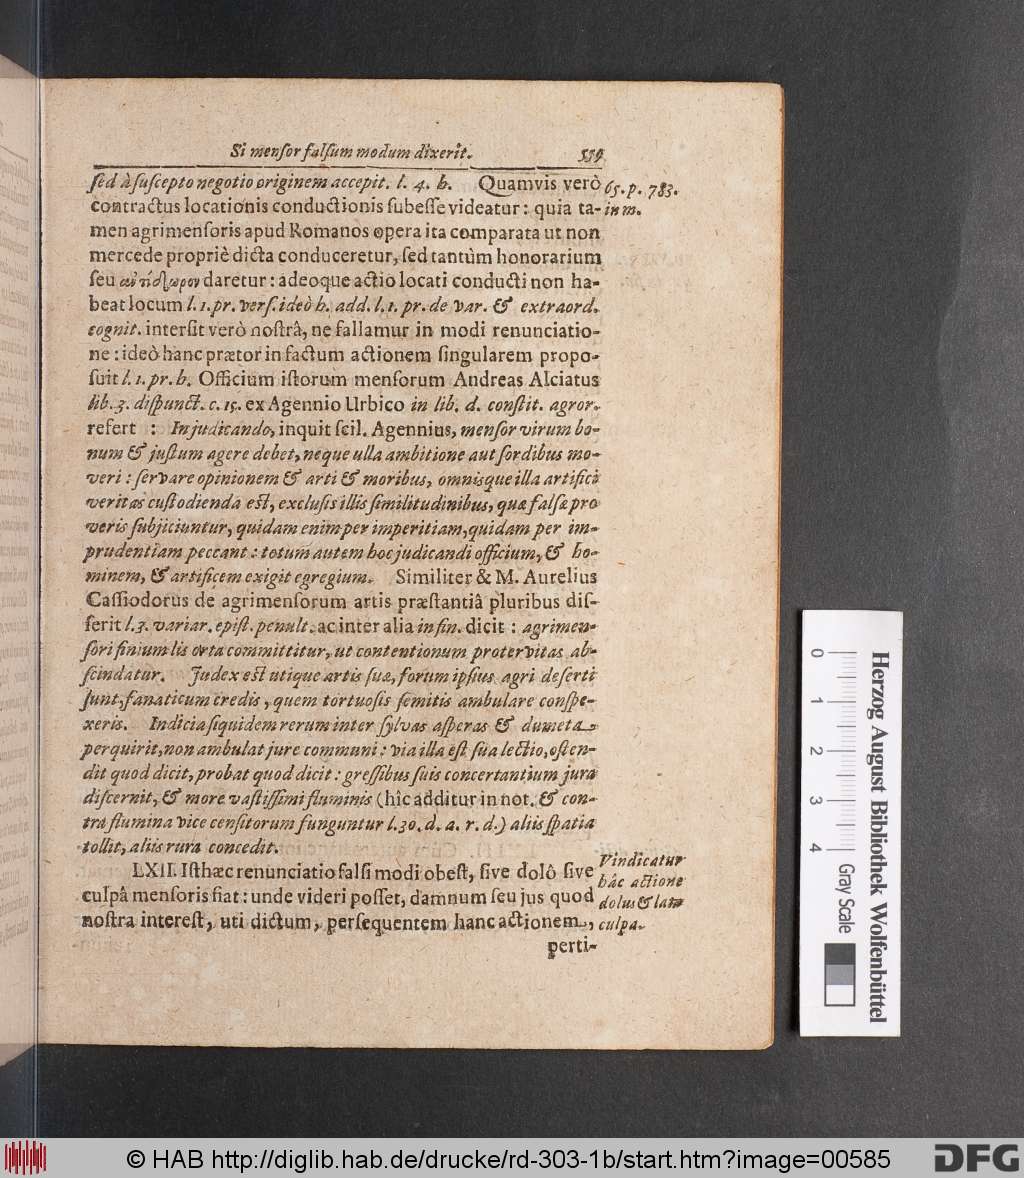 Si mensor falsum modum dixerit. 559
sed à suscepto negotio originem accepit. l. 4. h. Quamvis verò
contractus locationis conductionis subesse videatur: quia ta-
men agrimensoris apud Romanos opera ita comparata ut non
mercede propriè dicta conduceretur, sed tantùm honorarium
seu ἀντίδωρον daretur: adeoque actio locati conducti non ha-
beat locum l. 1. pr. vers. ideò h. add. l. 1. pr. de var. & extraord.
cognit. intersit verò nostrâ, ne fallamur in modi renunciatio-
ne: ideò hanc prætor in factum actionem singularem propo-
suit l. 1. pr. h. Officium istorum mensorum Andreas Alciatus
lib. 3. dispunct. c. 15. ex Agennio Urbico in lib. d. constit. agror.
refert : In judicando, inquit scil. Agennius, mensor virum bo-
num & justum agere debet, neque ulla ambitione aut sordibus mo-
veri: servare opinionem & arti & moribus, omnisque illa artifici
veritas custodienda est, exclusis illis similitudinibus, quæ falsæ pro
veris subjiciuntur, quidam enim per imperitiam, quidam per im-
prudentiam peccant: totum autem hoc judicandi officium, & ho-
minem, & artificem exigit egregium. Similiter & M. Aurelius
Cassiodorus de agrimensorum artis præstantiâ pluribus dis-
serit l. 3. variar. epist. penult. ac inter alia in fin. dicit: agrimen-
sori finium lis orta committitur, ut contentionum protervitas ab-
scindatur. Judex est utique artis suæ, forum ipsius agri deserti
sunt, fanaticum credis, quem tortuosis semitis ambulare conspe-
xeris. Indicia siquidem rerum inter sylvas asperas & dumeta
perquirit, non ambulat jure communi: via illa est sua lectio, osten-
dit quod dicit, probat quod dicit: gressibus suis concertantium jura
discernit, & more vastissimi fluminis (hîc additur in not. & con-
tra flumina vice censitorum funguntur l. 30. d. a. r. d.) aliis spatia
tollit, aliis rura concedit.
LXII. Isthæc renunciatio falsi modi obest, sive dolô sive
culpâ mensoris fiat: unde videri posset, damnum seu jus quod
nostra interest, uti dictum, persequentem hanc actionem,
perti-
65. p. 783.
in m.
Vindicatur
hâc actione
dolus & lata
culpa.
Herzog August Bibliothek Wolfenbüttel
Gray Scale
0 1 2 3 4
© HAB http://diglib.hab.de/drucke/rd-303-1b/start.htm?image=00585
DFG